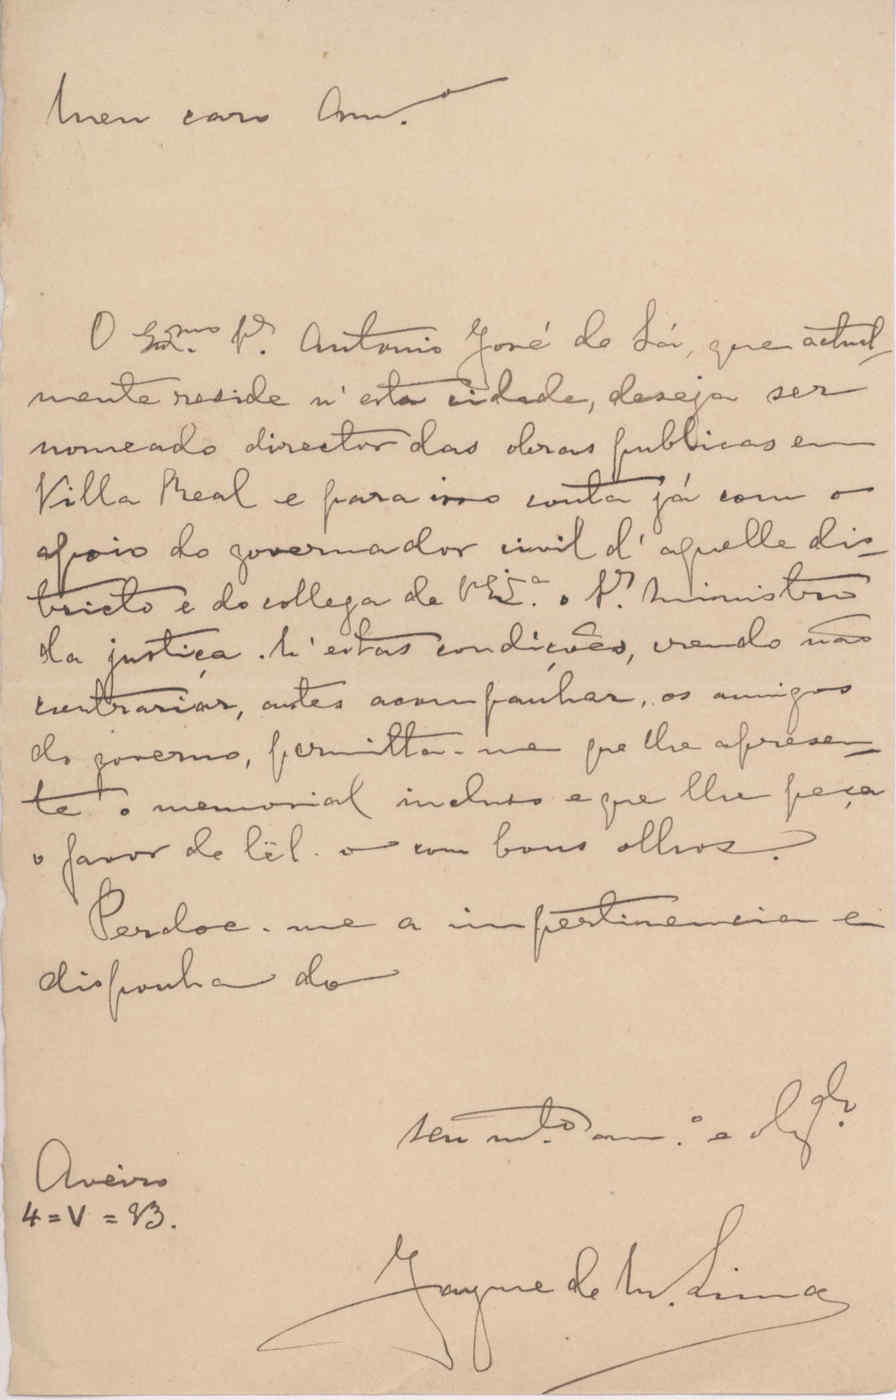 Meu caro Am.º
O Ex.mo Sr. Antonio José de Sá, que actual-
mente reside n'esta cidade, deseja ser
nomeado director das obras publicas em
Villa Real e para isso conta já com o
apoio do governador civil d'aquelle dis-
tricto e do collega de V. Ex.ª o Sr. Ministro
da justiça. N'estas condições, crendo não
contrariar, antes acompanhar, os amigos
do governo, permitta-me que lhe apresen-
te o memorial incluso e que lhe peça
o favor de lêl-o com bons olhos.
Perdoe-me a impertinencia e
disponha do
seu mt.º am.º e obg.do
Aveiro
4=V=93.
Jayme de M. Lima